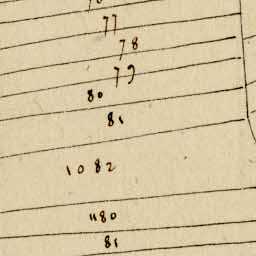 77
78
79
80
81
1082
1180
81